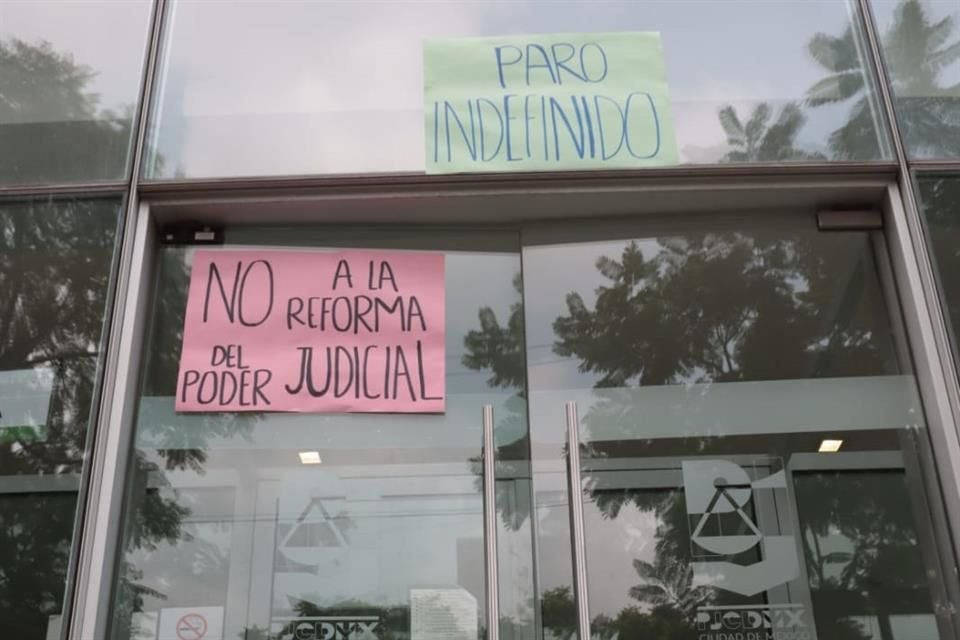 PARO
INDEFINIDO
NO A LA
REFORMA
DEL
PODER JUDICIAL
PJCDMX
PJCDMX
CIUDAD DE MÉXICO